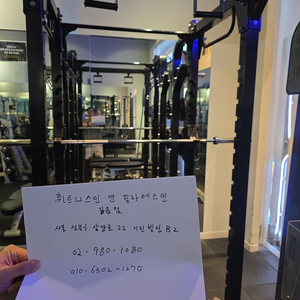 휘트니스인 앤 필라테스인
길음점
서울 성북구 삼양로 22 이진빌딩 B2
02-980-1080
010-6302-1275